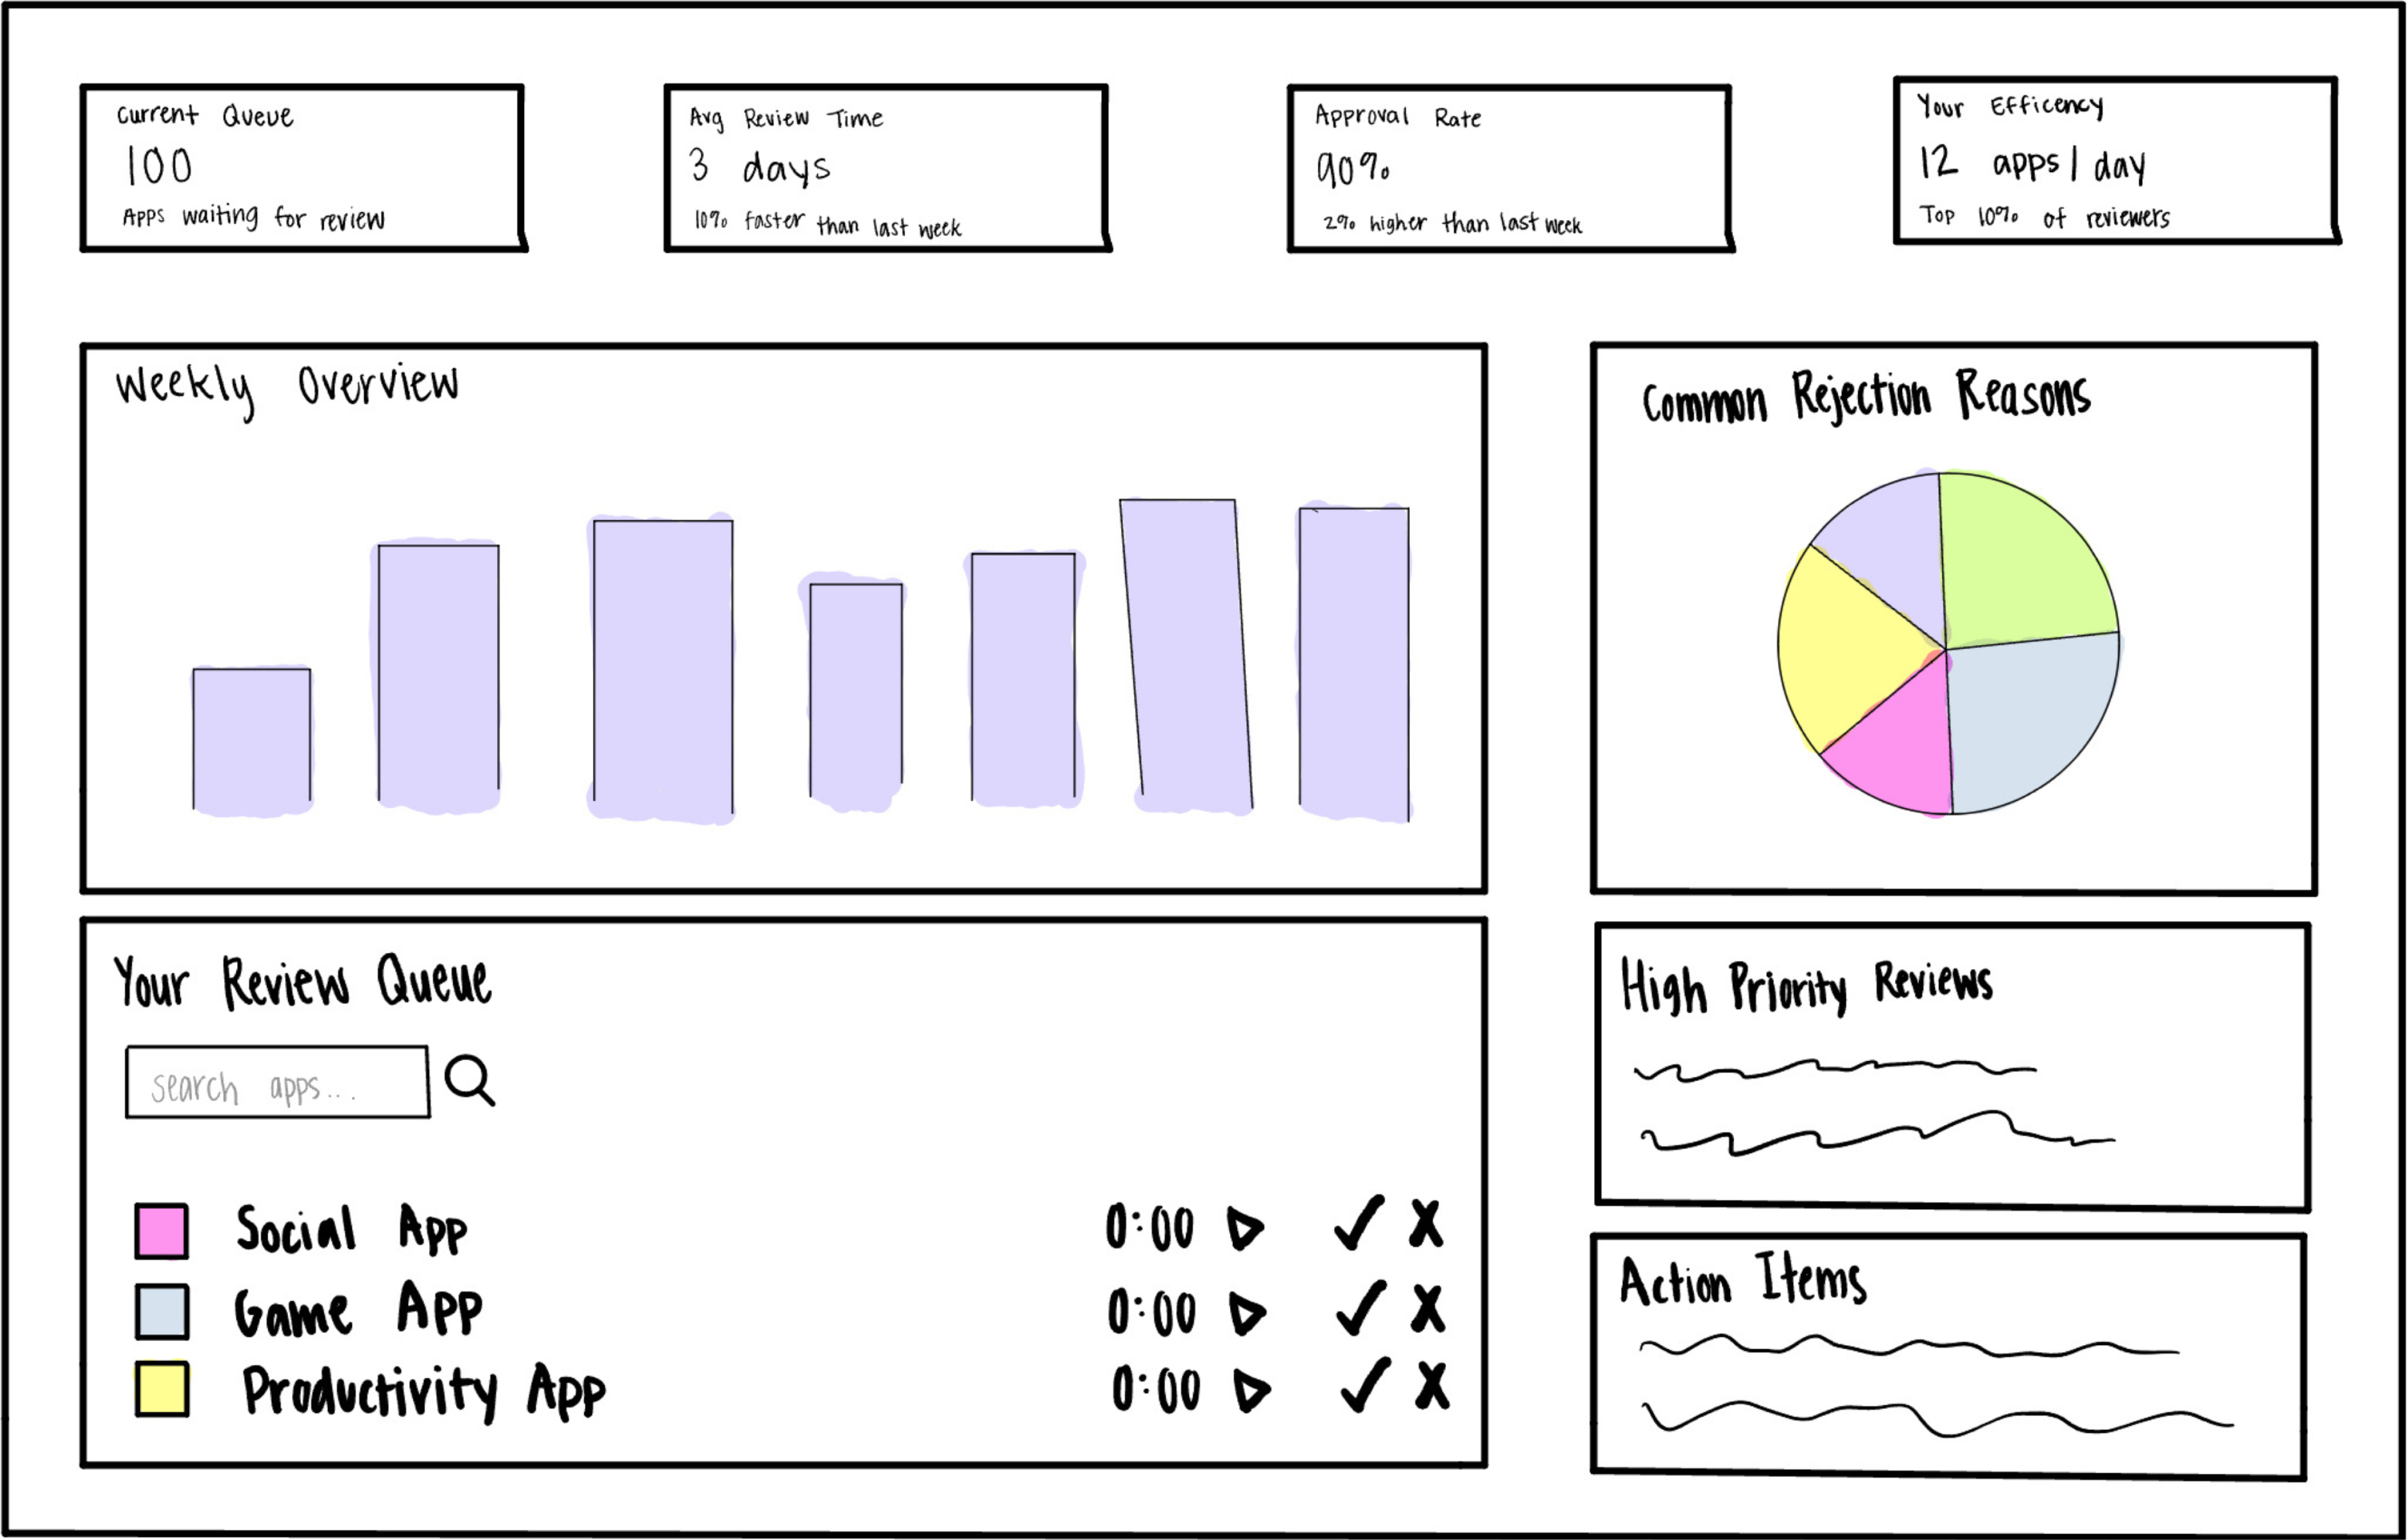 Current Queue
100
Apps waiting for review
Avg Review Time
3 days
10% faster than last week
Approval Rate
90%
2% higher than last week
Your Efficency
12 apps/day
Top 10% of reviewers
Weekly Overview
Common Rejection Reasons
Your Review Queue
search apps...
Social App 0:00
Game App 0:00
Productivity App 0:00
High Priority Reviews
Action Items